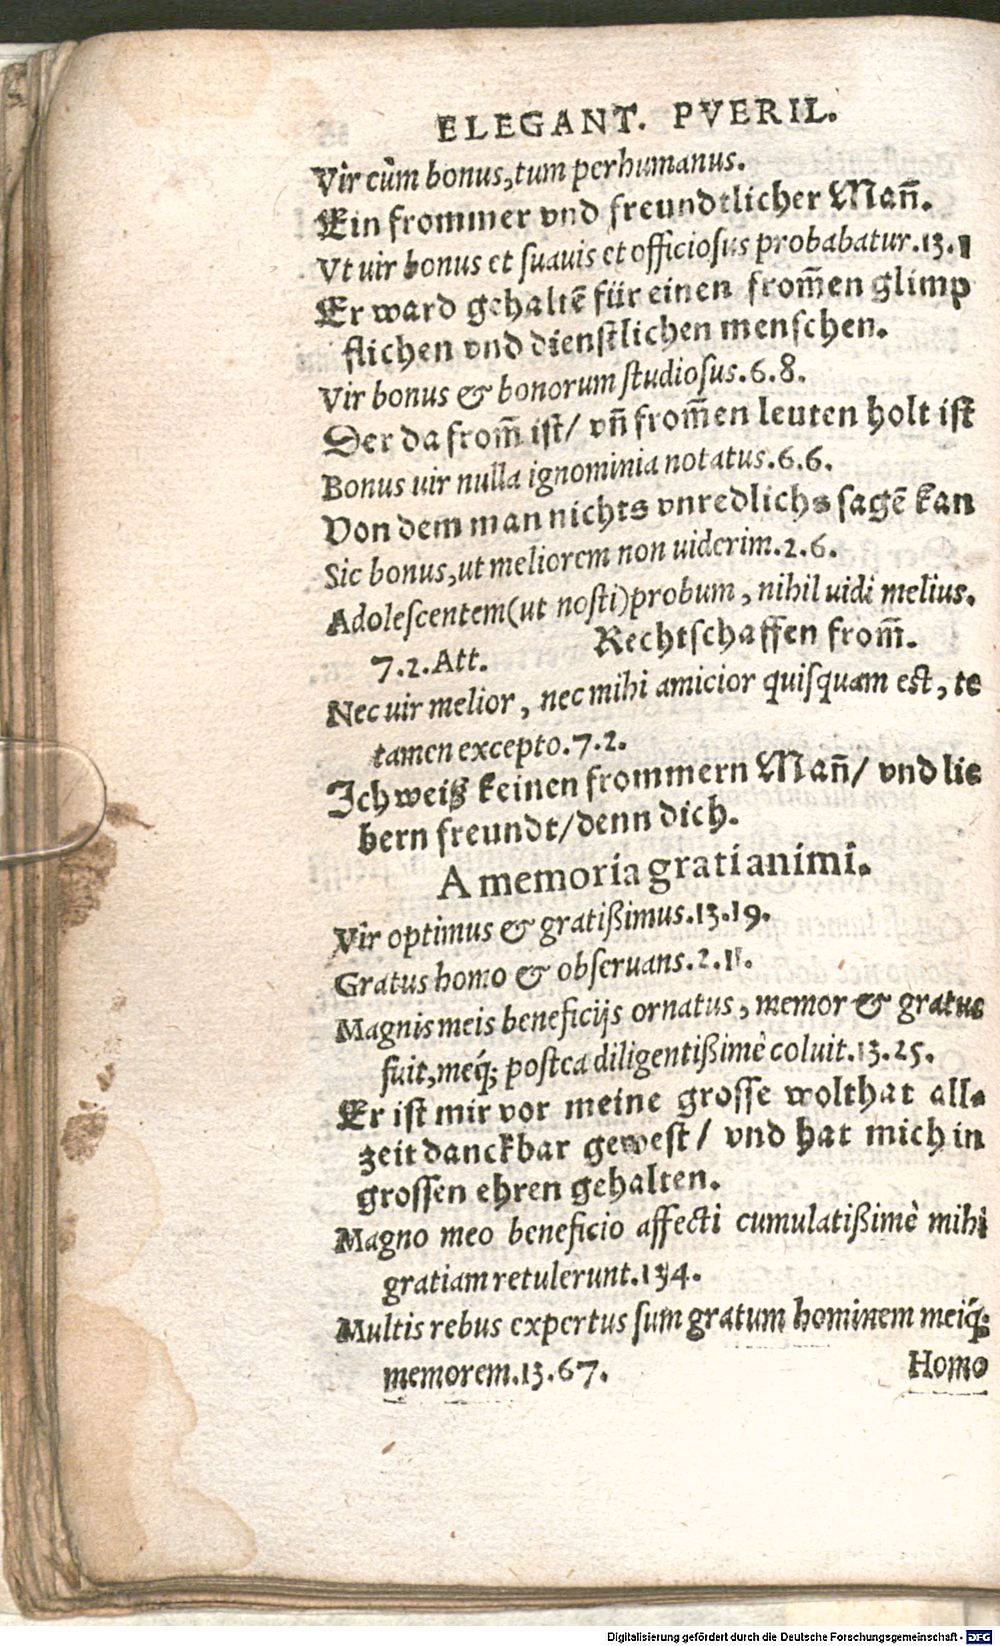 ELEGANT. PVERIL.
Vir cùm bonus, tum perhumanus.
Ein frommer vnd freundtlicher Mañ.
Vt uir bonus et suauis et officiosus probabatur.13.1
Er ward gehaltẽ für einen from̃en glimp
flichen vnd dienstlichen menschen.
Vir bonus & bonorum studiosus.6.8.
Der da from̃ ist/ vñ from̃en leuten holt ist
Bonus uir nulla ignominia notatus.6.6.
Von dem man nichts vnredlichs sagẽ kan
Sic bonus, ut meliorem non uiderim.2.6.
Adolescentem (ut nosti) probum, nihil uidi melius.
7.2. Att. Rechtschaffen from̃.
Nec uir melior, nec mihi amicior quisquam est, te
tamen excepto.7.2.
Ich weiß keinen frommern Mañ/ vnd lie
bern freundt/ denn dich.
A memoria grati animi.
Vir optimus & gratißimus.13.19.
Gratus homo & obseruans.2.11.
Magnis meis beneficijs ornatus, memor & gratus
fuit, meq́; postea diligentißimè coluit.13.25.
Er ist mir vor meine grosse wolthat all-
zeit danckbar gewest/ vnd hat mich in
grossen ehren gehalten.
Magno meo beneficio affecti cumulatißimè mihi
gratiam retulerunt.134.
Multis rebus expertus sum gratum hominem meiq́;
memorem.13.67. Homo
Digitalisierung gefördert durch die Deutsche Forschungsgemeinschaft - DFG